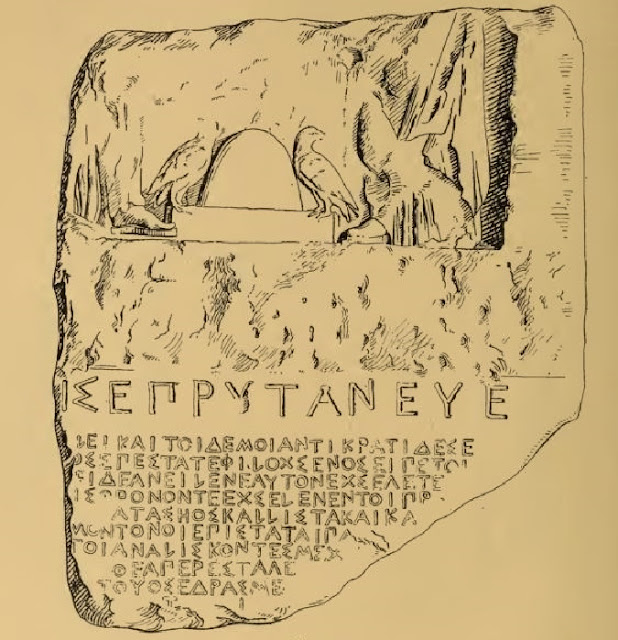 ΙΣΕΠΡΥΤΑΝΕΥΕ
ΛΕΙΚΑΙΤΟΙΔΕΜΟΙΑΝΤΙΚΡΑΤΙΔΕΣΕ
ΟΣΕΓΕΣΤΑΤΕΦΙΛΟΧΣΕΝΟΣΕΙΓΕΤΟΙ
ΕΝΕΛΥΤΟΝΕΧΣΕΛΑΣΤΕ
ΟΝΟΝΤΕΕΧΣΕΛΕΝΕΝΤΟΙΓΡ
ΑΤΑΣΗΟΣΚΑΛΛΙΣΤΑΚΑΙΚΑ
ΝΤΟΝΟΙΕΓΙΣΤΑΤΑΙΓΑ
ΤΟΙΑΝΑΛΙΣΚΟΝΤΕΣΜΕΧ
ΘΕΑΓΕΡΕΣΤΑΛΕ
ΤΟΥΟΣΕΔΡΑΣΜΕ